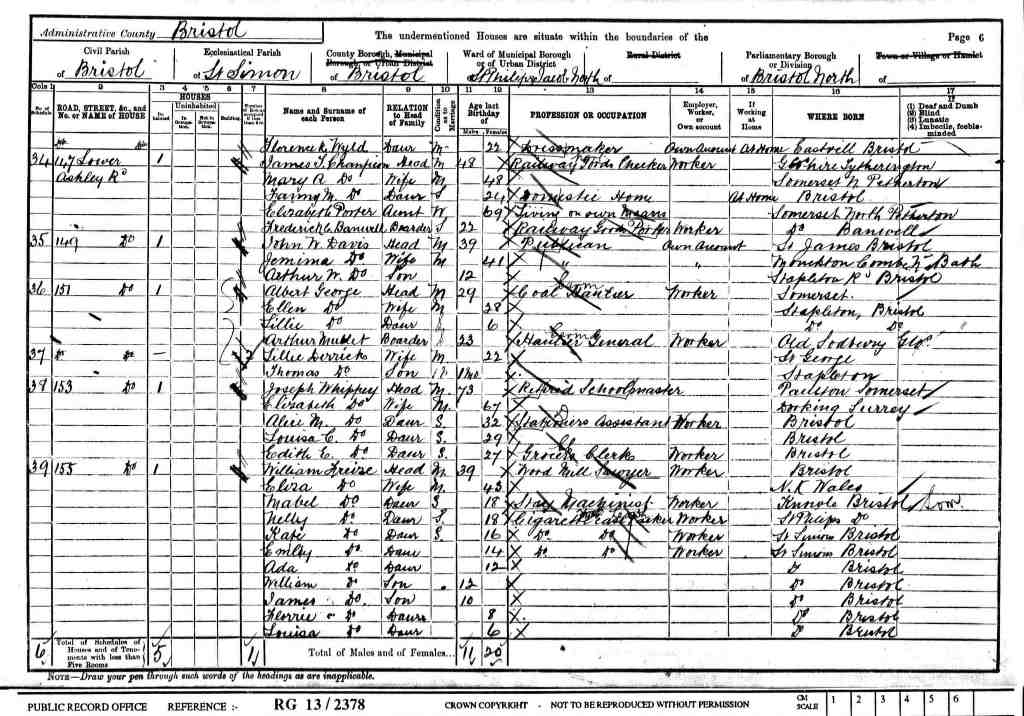 Administrative County Bristol The undermentioned Houses are situate within the boundaries of the Page 6
Civil Parish Ecclesiastical Parish County Borough, Municipal Borough, or Urban District Ward of Municipal Borough or of Urban District Rural District Parliamentary Borough or Division Town or Village or Hamlet
of Bristol of St Simon of Bristol of St Philip & Jacob North of of Bristol North of
Cols 1 2 3 4 5 6 7 8 9 10 11 12 13 14 15 16 17
No. of Schedule ROAD, STREET, &c., and No. or NAME of HOUSE HOUSES Inhabited Uninhabited In Occupation Not in Occupation Building Name and Surname of each Person RELATION to Head of Family Condition as to Marriage Age last Birthday of Males Females PROFESSION OR OCCUPATION Employer, Worker, or Own account If Working at Home WHERE BORN (1) Deaf and Dumb (2) Blind (3) Lunatic (4) Imbecile, feeble-minded
Florence K Wyld Daur M 22 Dressmaker Own Account At Home Eastvill Bristol
34 147 Lower 1 James T. Champion Head M 48 Railway Goods Checker Worker Glo'shire Tytherington
Ashley Rd Mary A. Do Wife M 48 Somerset N Petherton
Fanny M. Do Daur S 24 Domestic Home At Home Bristol
Elizabeth Porter Aunt W 69 Living on own Means Somerset North Petherton
Frederick C Banwell Boarder S 22 Railway Goods Porter Worker Do Banwell
35 149 Do 1 John W. Davis Head M 39 Publican Own Account St James Bristol
Jemima Do Wife M 41 " " Monckton Combe Nr Bath
Arthur W. Do Son 12 Stapleton Rd Bristol
36 151 Do 1 Albert George Head M 29 Coal Haulier Worker Somerset
Ellen Do Wife M 28 Stapleton, Bristol
Lillie Do Daur 6 Do Do
Arthur Boarder S 23 Haulier General Worker Old Sodbury Glos
37 Do Do – Lillie Derrick Wife M 22 St George
Thomas Do Son 1 Mo Stapleton
39 153 Do 1 Joseph Whippey Head M 73 Retired Schoolmaster Paulton Somerset
Elizabeth Do Wife M. 67 Dorking Surrey
Alice M. Do Daur S. 32 Stationers Assistant Worker Bristol
Louisa C. Do Daur S. 29 Bristol
Edith C. Do Daur S. 27 Grocers Clerks Worker Bristol
39 155 Do 1 William Freize Head M 39 Wood Mill Sawyer Worker Bristol
Eliza Do Wife M 43 N.K Wales
Mabel Do Daur S 18 Stay Machinist Worker Knowle Bristol
Nelly Do Daur S. 18 Cigarette Maker Worker St Philips Do
Kate Do Daur S. 16 Do Do Worker St Simons Bristol
Emily Do Daur 14 Do Do Worker St Simons Bristol
Ada Do Daur 12 D Bristol
William Do Son 12 Do Bristol
James Do. Son 10 Do Bristol
Florrie Do Daur 8 Do Bristol
Louisa Do Daur 6 D Bristol
6 Total of Schedules of Houses and of Tenements with less than Five Rooms 5 Total of Males and of Females... 11 20
NOTE—Draw your pen through such words of the headings as are inapplicable.
PUBLIC RECORD OFFICE REFERENCE :- RG 13/2378 CROWN COPYRIGHT - NOT TO BE REPRODUCED WITHOUT PERMISSION CM SCALE 1 2 3 4 5 6